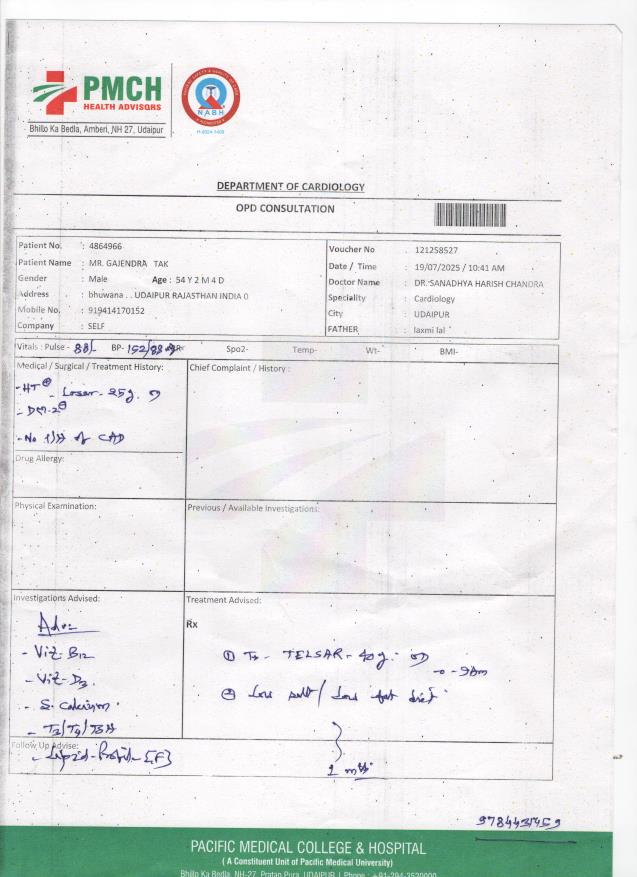 PMCH
HEALTH ADVISORS
Bhillo Ka Bedla, Amberi, NH 27, Udaipur
NABH
DEPARTMENT OF CARDIOLOGY
OPD CONSULTATION
Patient No. : 4864966
Patient Name : MR. GAJENDRA TAK
Gender : Male Age : 54 Y 2 M 4 D
Address : bhuwana . . UDAIPUR RAJASTHAN INDIA 0
Mobile No. : 919414170152
Company : SELF
Voucher No : 121258527
Date / Time : 19/07/2025 / 10:41 AM
Doctor Name : DR. SANADHYA HARISH CHANDRA
Speciality : Cardiology
City : UDAIPUR
FATHER : laxmi lal
Vitals : Pulse - 88/- BP- 152/88 Spo2- Temp- Wt- BMI-
Medical / Surgical / Treatment History:
- HT⊕ - Losar - 25
- DM-2
- No of CAD
Drug Allergy:
Chief Complaint / History :
Physical Examination:
Previous / Available Investigations:
Investigations Advised:
Adv:-
- Vit B12
- Vit D3.
- S. Calcium
- T3/T4/TSH
Treatment Advised:
Rx
① TELSAR - 40 OD
- 9 Am
② Low salt / Low fat diet
Follow Up Advise:
- Lipid - Profile - [F]
PACIFIC MEDICAL COLLEGE & HOSPITAL
( A Constituent Unit of Pacific Medical University)
Bhillo Ka Bedla, NH-27, Pratap Pura, UDAIPUR | Phone : +91-294-3520000